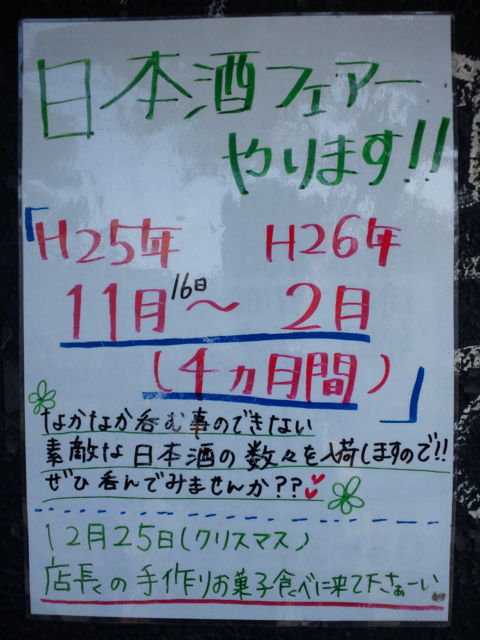 日本酒フェアー
やります!!
「H25年 H26年
11月16日～2月
(4ヵ月間)」
なかなか呑む事のできない
素敵な日本酒の数々を入荷しますので!!
ぜひ呑んでみませんか??
12月25日(クリスマス)
店長の手作りお菓子食べに来て下さぁーい